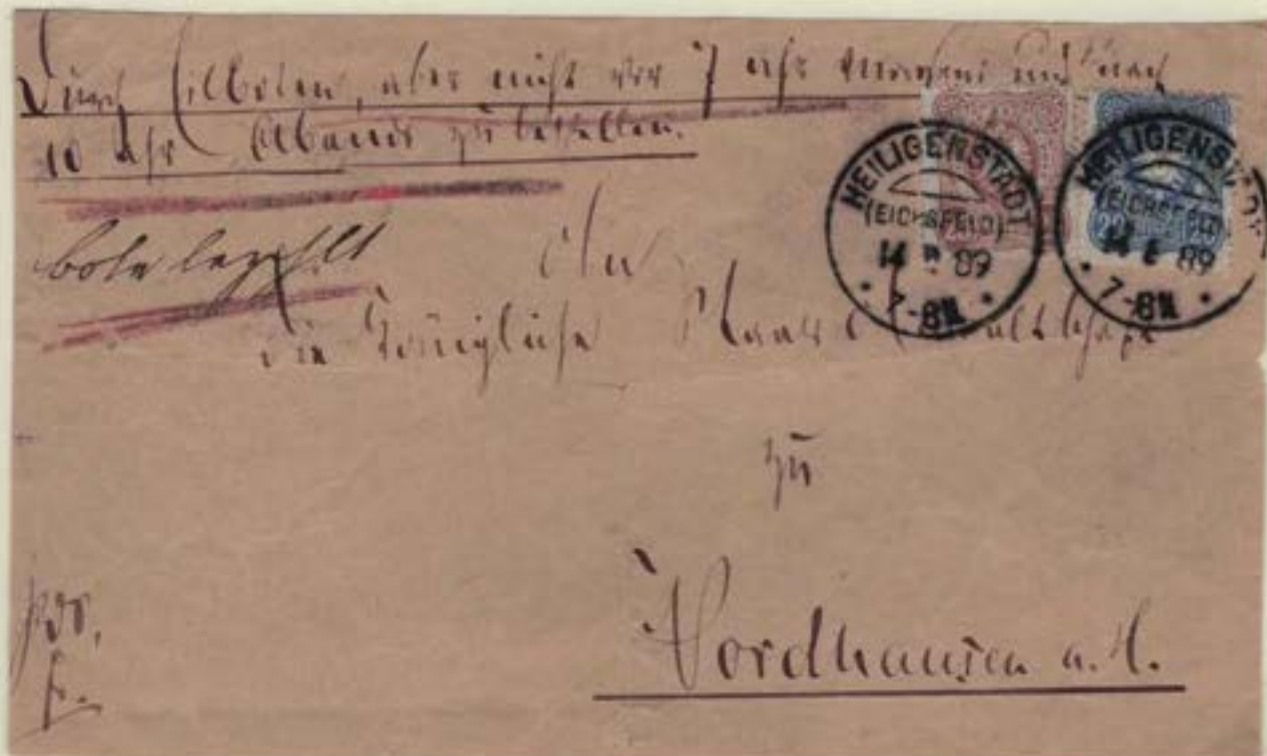 Durch Eilboten, aber nicht vor 7 Uhr Morgens und nach
10 Uhr Abends zu bestellen.
Bote bezahlt
An
die Königliche Staatsanwaltschaft
zu
Nordhausen a. H.
HEILIGENSTADT
(EICHSFELD)
14 89
7-8N
HEILIGENSTADT
(EICHSFELD)
14 6 89
7-8N
20 20